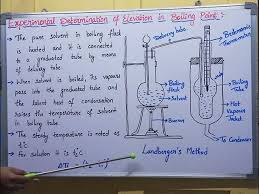 Experimental Determination of Elevation in Boiling Point:
→ The pure solvent in boiling flask
is heated and it is connected
to a graduated tube by means
of delivery tube.
→ When solvent is boiled, its vapours
pass into the graduated tube and
the latent heat of condensation
raises the temperature of solvent
in boiling tube.
→ The steady temperature is noted as
→ For solution it is
Delivery tube
Thermometer
Boiling
flask
Solvent
Burner
Boiling
Tube
Hot
Vapour
Jacket
To Condenser
Landsberger's Method